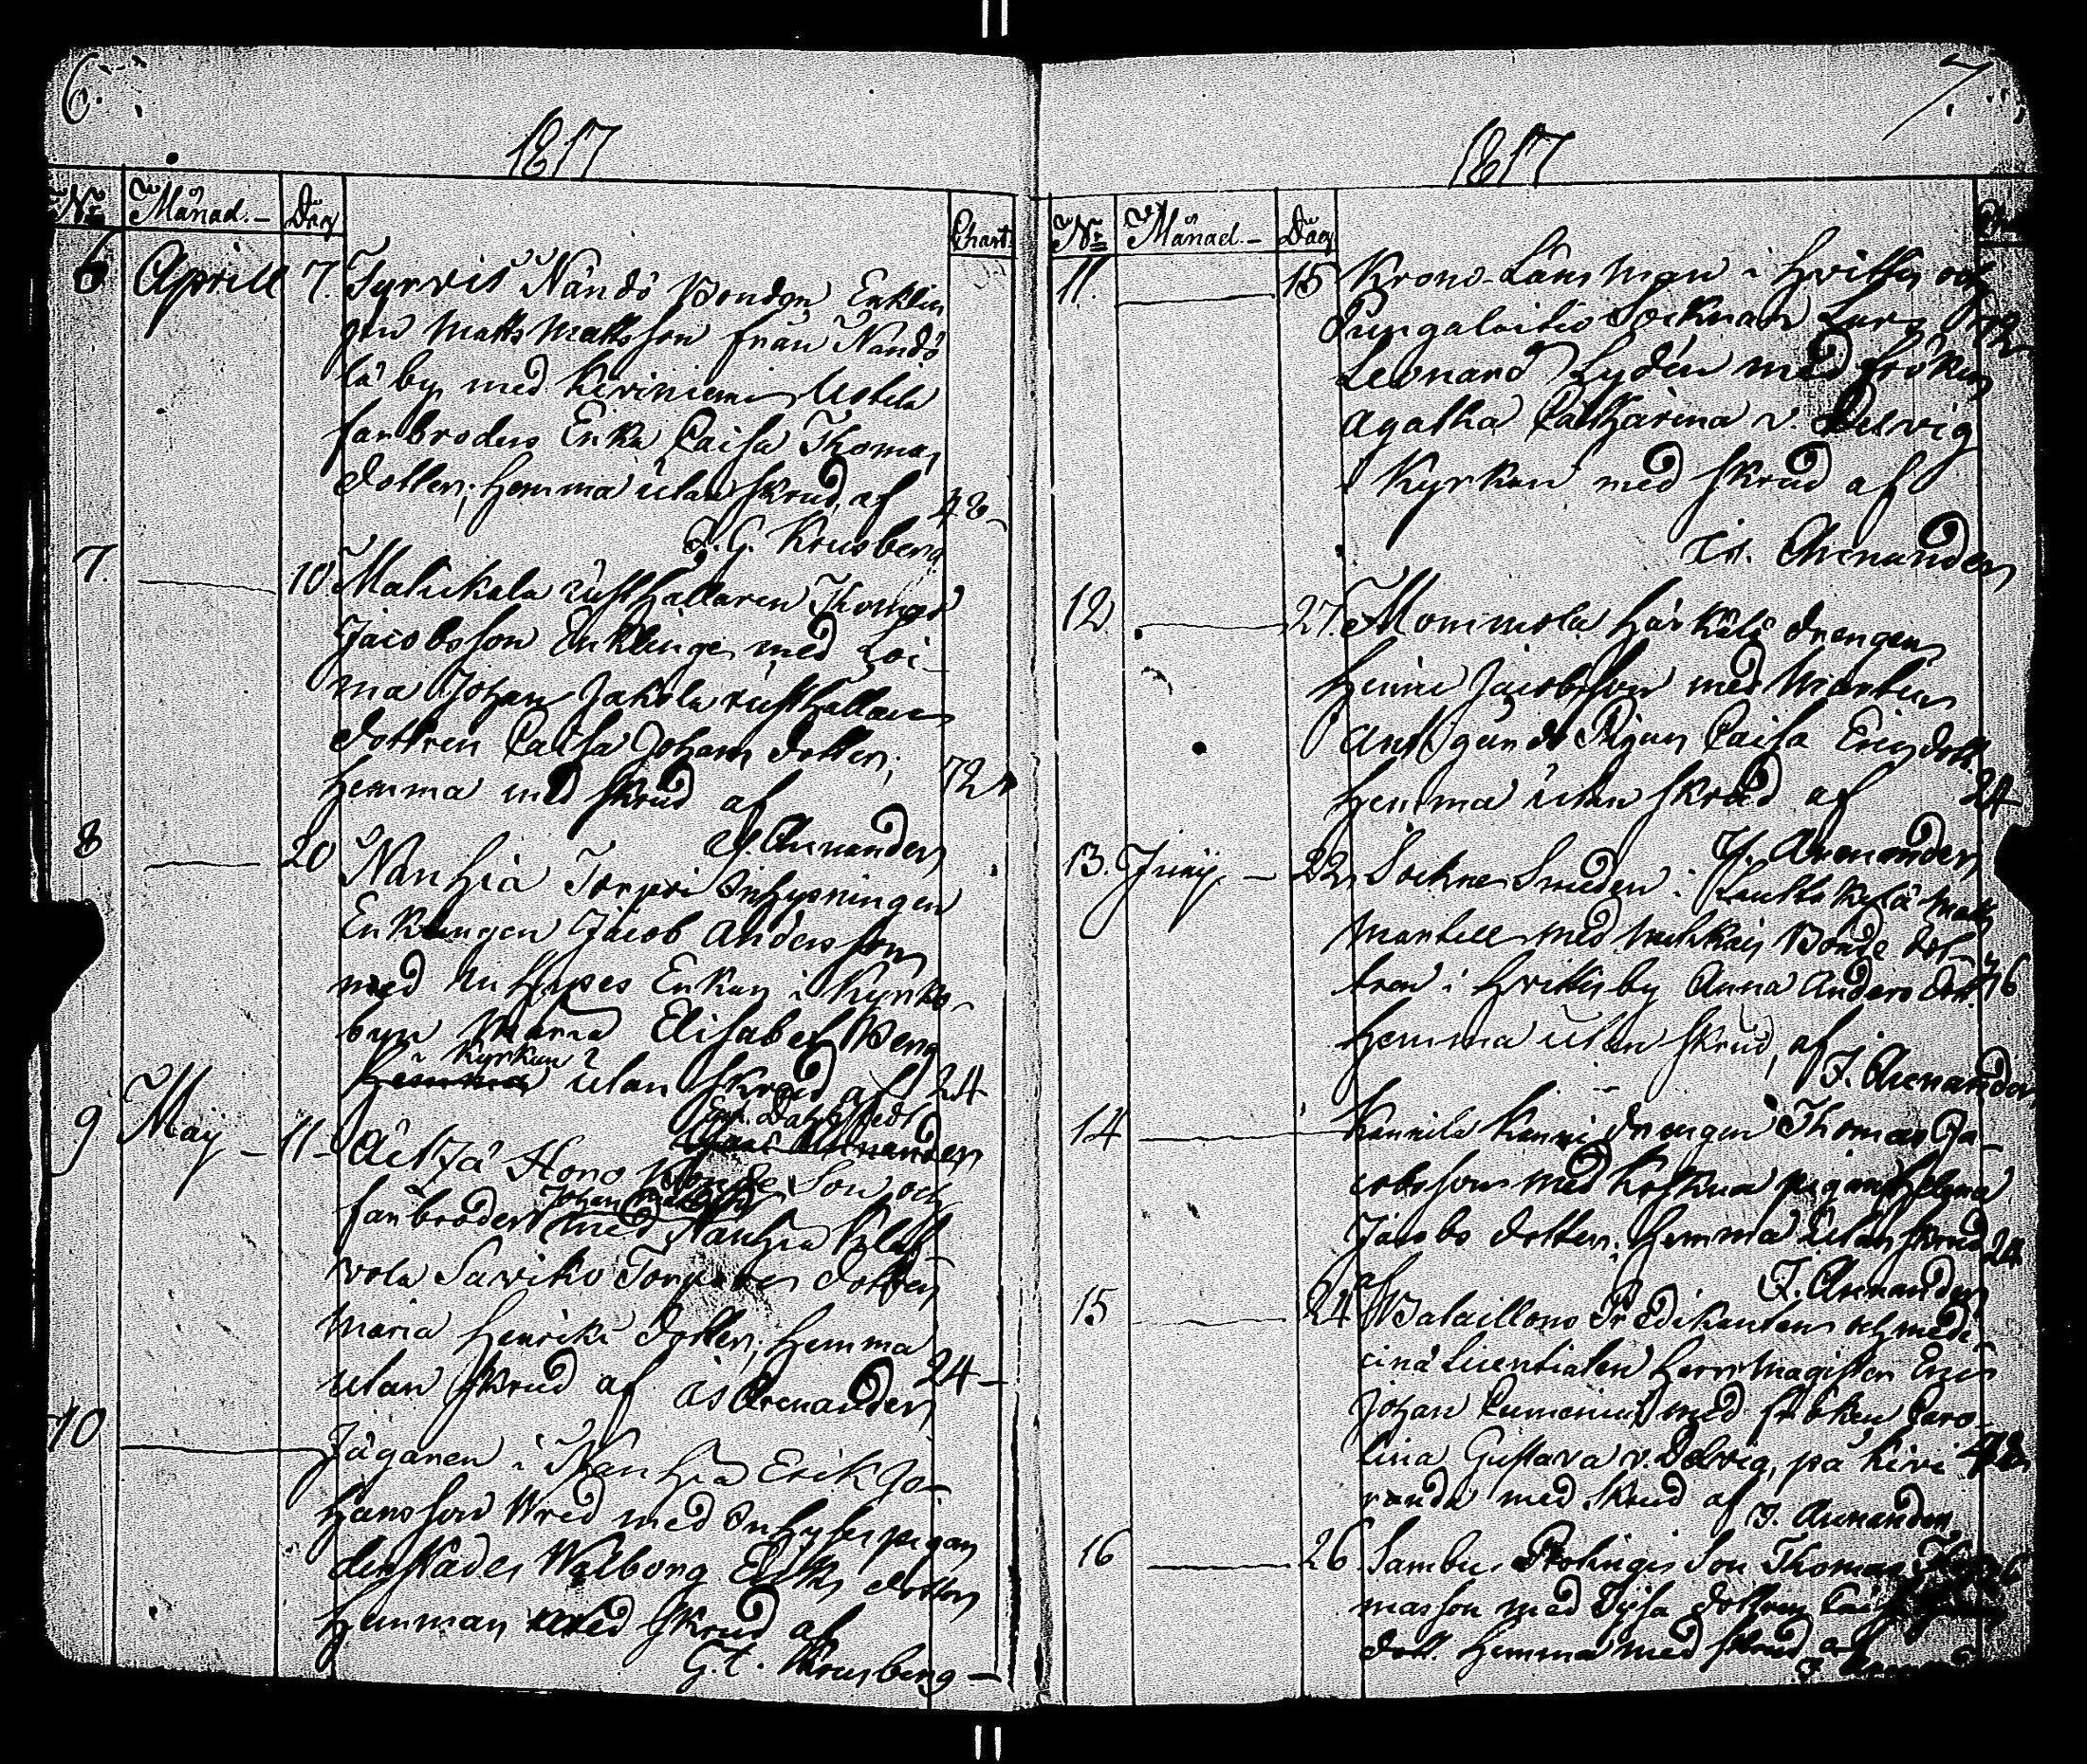 6.
1817
No Månad.- Dag Chart:
6 Aprill 7. Tyrvis Nändö Bonden Enklin
gen Matts Mattsson från Nändö
lä by med Keriniemi Uotila
farbroders Enka Caisa Thomas
dotter; hemma utan skrud, af 48-
J. G. Krusberg
7. 10 rusthållaren Thomas
Jacobsson Enklinge med Loi-
ma Johan Jakola rusthållare
dottren Caisa Johans dotter;
hemma med skrud af 72
Is. Arenander
8 20 Nanhia Torpri Inhysningen
Enklingen Jacob Andersson
med Inhyses Enkan i Kyrko-
byn Maria Elisabet Berg
i Kyrkan
hemma utan skrud af 24
Arenander
9 May - 11- Äetzä Hono Bonde Son och
Johan Mattsson
farbroder med Nanhia
vola Saviko Torpare dottren
Maria Henriks dotter; hemma
utan skrud af Is Arenander 24-
10 Jägaren i Nanhia Erik Jo-
hansson Wred med Inhyses pigan
derstädes Walborg Eriks dotter
hemman med skrud af
G. t. Krusberg -
7.
1817
No Månad.- Dag
11. 15 Krono-Länsman i Hvittis och
Pungalaitio Socknar Lars 72
Leonard Lydén med fröken
Agatha Catharina v. Delwig
i Kyrkan med skrud af
Is. Arenander
12 27. Mommola Härkälä drengen
Heinri Jacobsson med
pigan Caisa Ericsdott.
hemma utan skrud af 24
Is. Arenander
13. Junij. - 22 Sockne Smeden i Lauttakylä Matts
Martell med Bonde dot-
tren i Hvittis by Anna Anders dott. 76
hemma utan skrud, af
I. Arenander
14 Kannila drengen Thomas Ja-
cobsson med pigan Helena
Jacobs dotter; hemma utan skrud 24
af I. Arenander
15 24 Bataillons Predikanten och medi-
cinä Licentiaten Herr Magister Eric
Johan Cumenius med fröken Caro-
lina Gustava v. Delvig, på Kivi 48
randa med skrud af I. Arenander
16 26 Sambu Son Thomas Tho-
masson med dottren
dott. hemma med skrud af